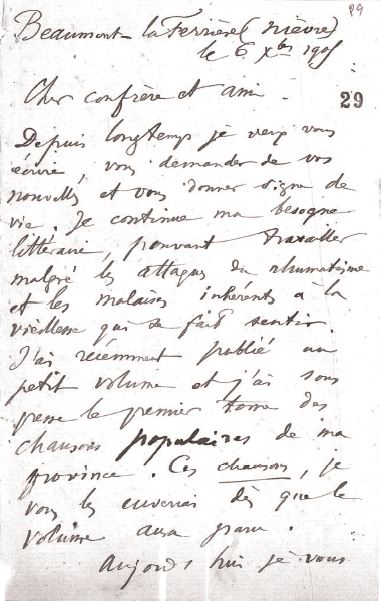 89
Beaumont-la-Ferrière (Nièvre)
le 6 Xbre 1905
Cher confrère et ami.
29
Depuis longtemps je veux vous
écrire, vous demander de vos
nouvelles et vous donner signe de
vie. Je continue ma besogne
littéraire, pouvant travailler
malgré les attaques du rhumatisme
et les malaises inhérents à la
vieillesse qui se fait sentir.
J'ai récemment publié un
petit volume et j'ai sous
presse le premier tome des
chansons populaires de ma
province. Ces chansons, je
vous les enverrai dès que le
volume aura paru.
Aujourd'hui je vous